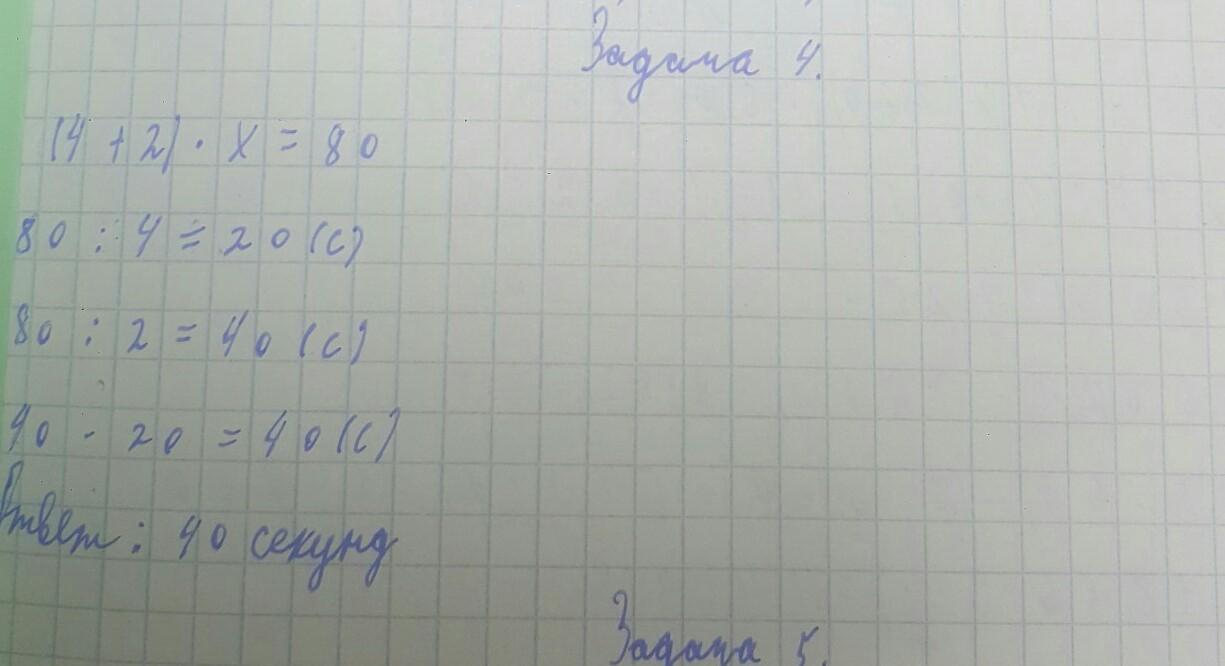 Задача 4.
(4 + 2) · x = 80
80 : 4 = 20 (с)
80 : 2 = 40 (с)
40 - 20 = 40 (с)
Ответ: 40 секунд
Задача 5.